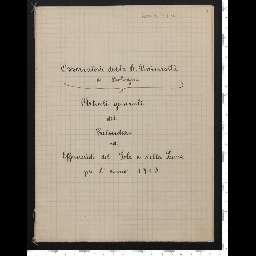 Osservatorio della R. Università
di Bologna
Metodi generali
del
Calendario
ed
Effemeridi del Sole e della Luna
per l'anno 1913